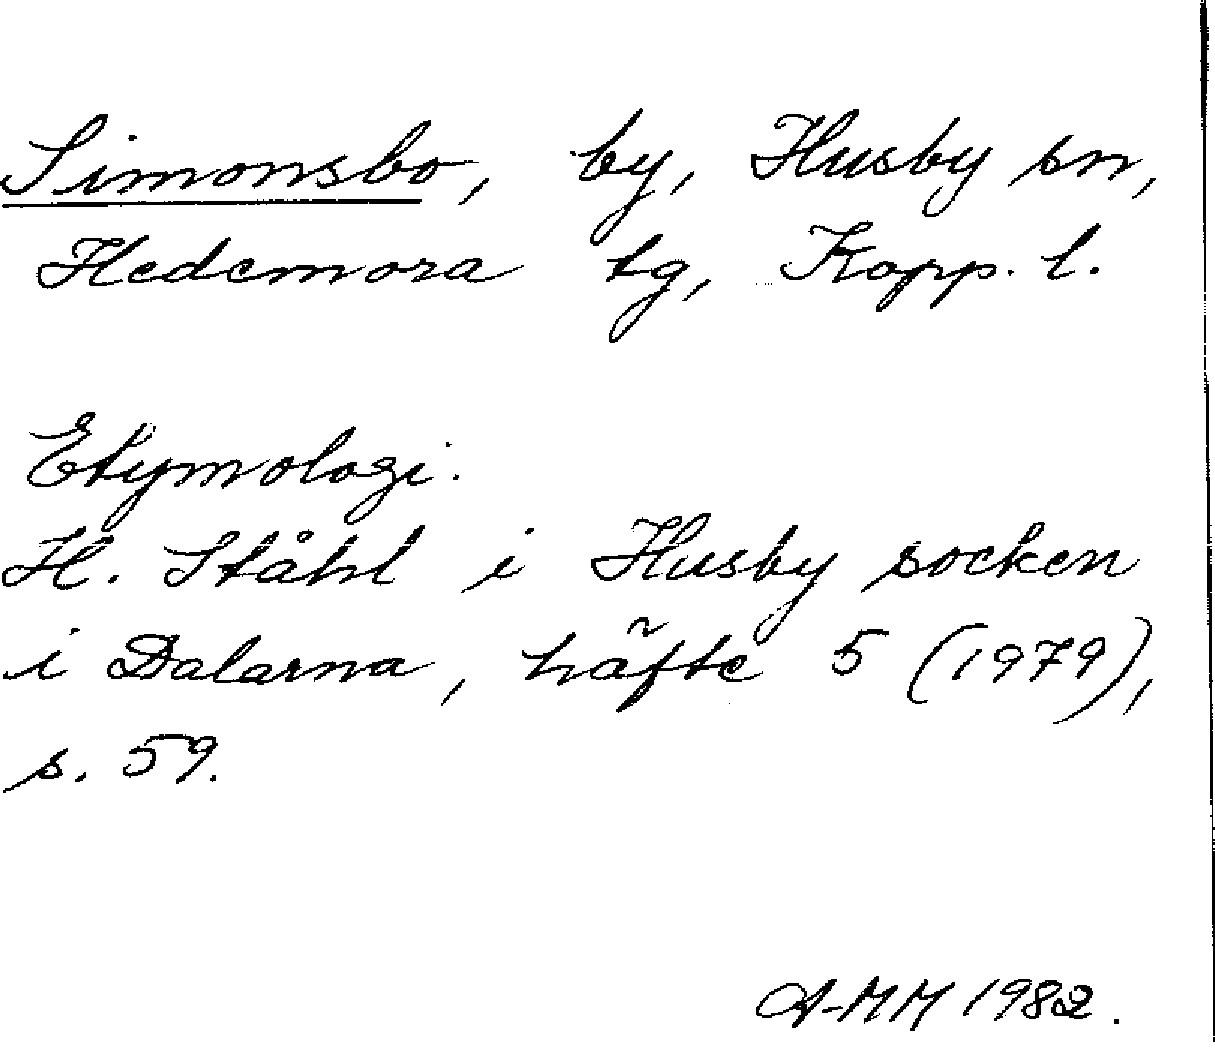 Simonsbo, by, Husby sn,
Hedemora tg, Kopp. l.
Etymologi.
H. Ståhl i Husby socken
i Dalarna, häfte 5 (1979),
s. 59.
A-MM 1982.